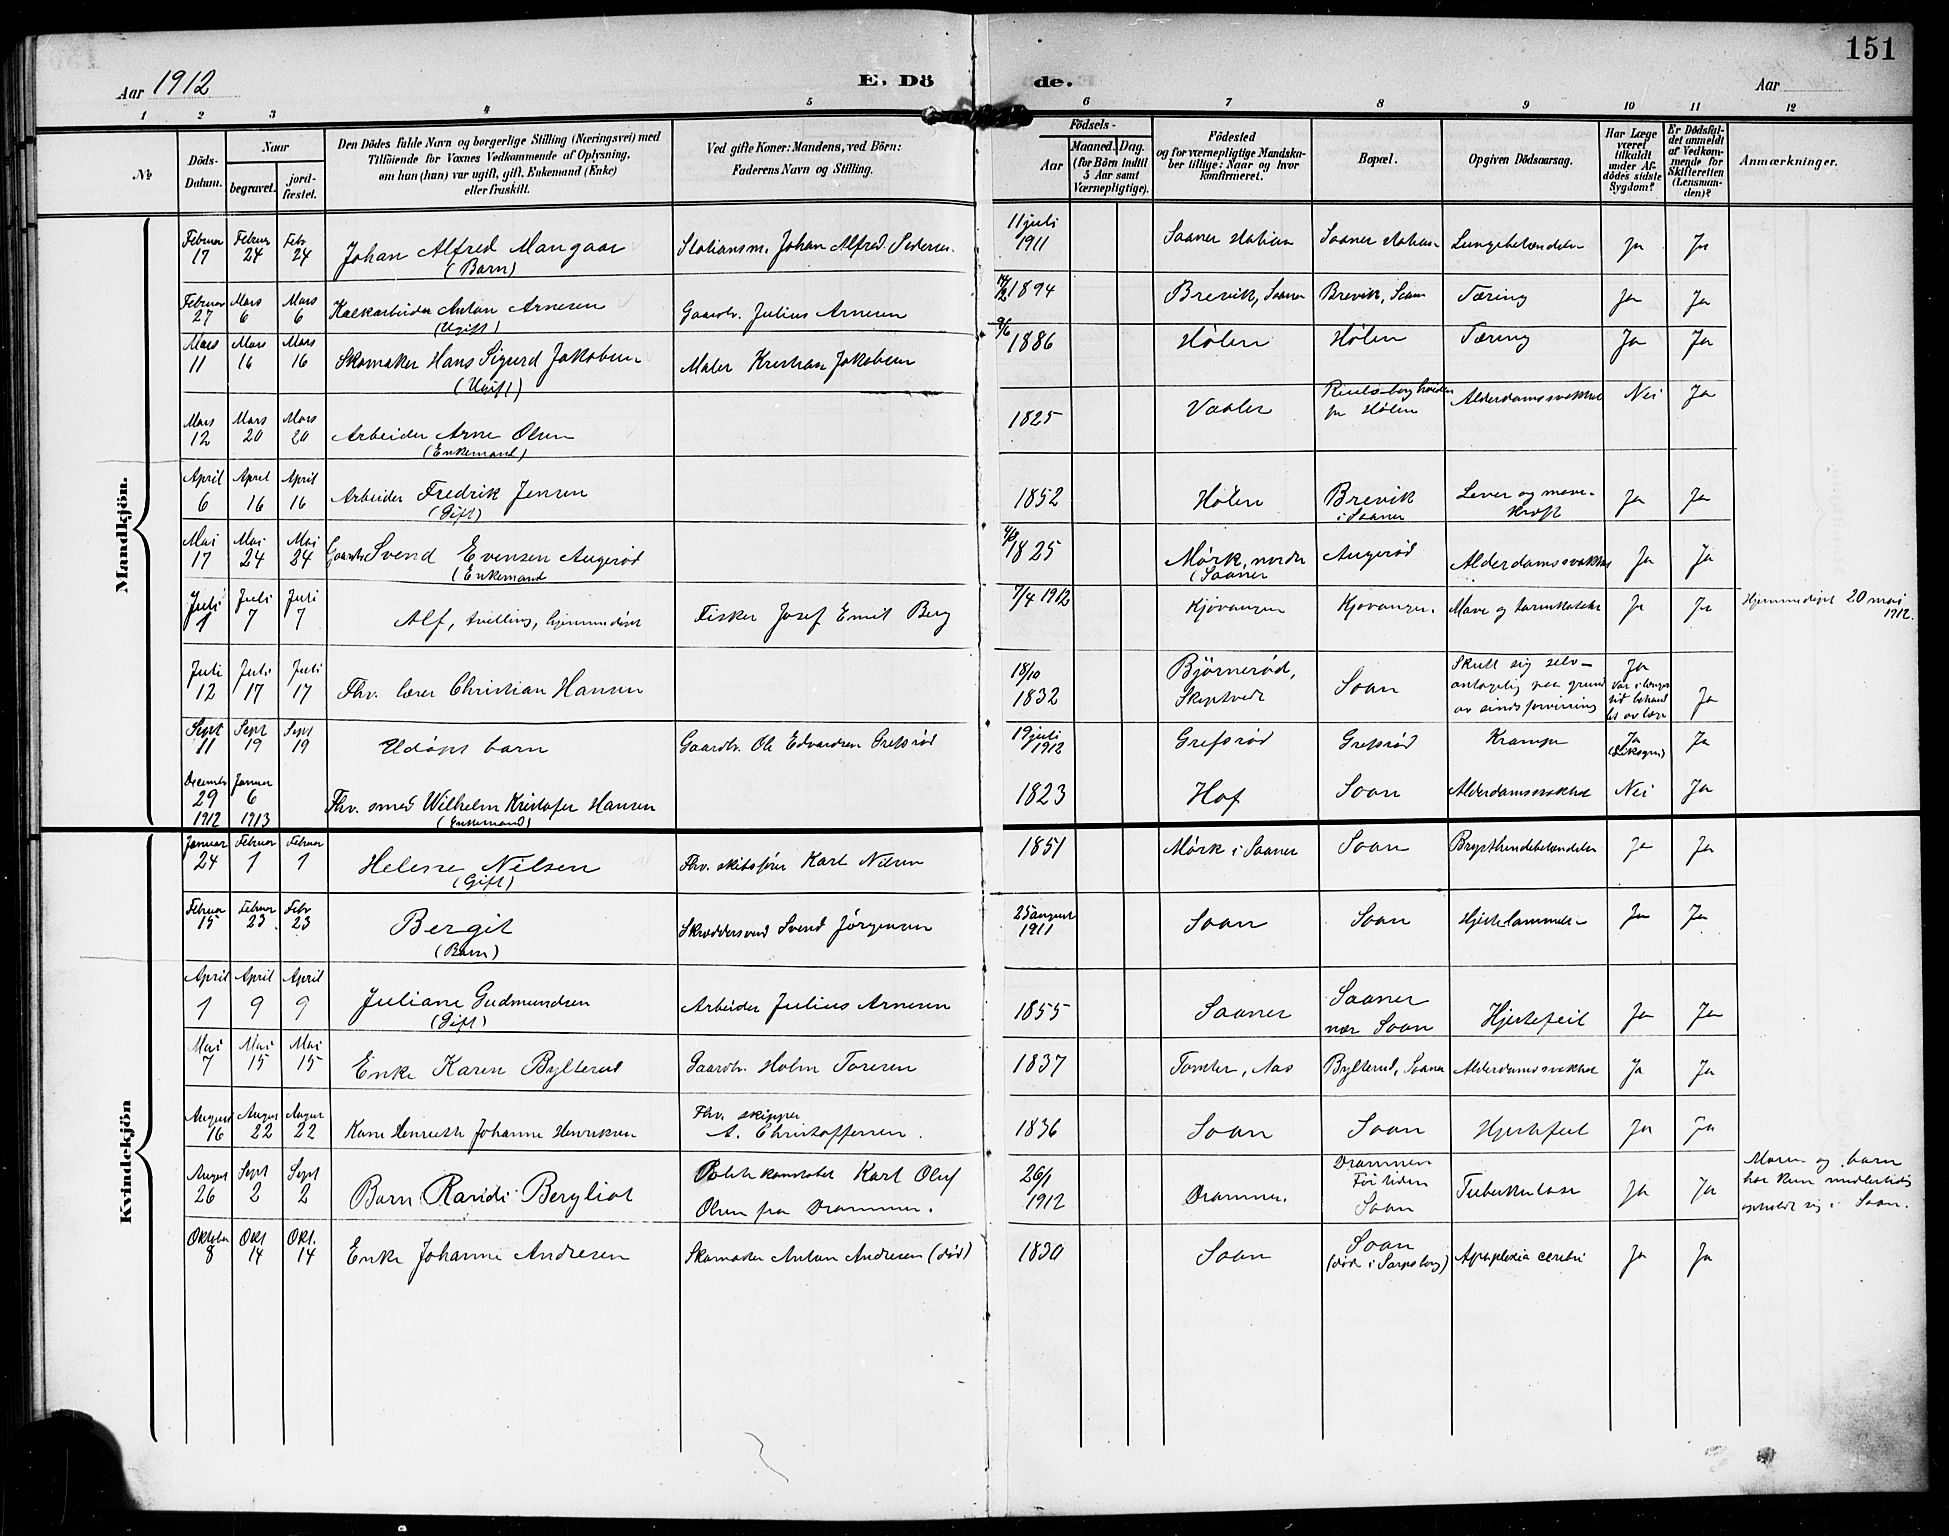 151
Aar 1912 E. Dö de. Aar
1 2 3 4 5 6 7 8 9 10 11 12
No
Döds-Datum.
Naar
begravet. jordfæstet.
Den Dödes fulde Navn og borgerlige Stilling (Næringsvei) med
Tilföiende for Voxnes Vedkommende af Oplysning,
om han (hun) var ugift, gift, Enkemand (Enke)
eller fraskilt.
Ved gifte Koner: Mandens, ved Börn:
Faderens Navn og Stilling.
Födsels-
Aar Maaned. Dag.
(for Börn indtil
5 Aar samt
Værnepligtige).
Födested
og for værnepligtige Mandskaber
tillige: Naar og hvor
konfirmeret.
Bopæl.
Opgiven Dödsaarsag.
Har Læge
været
tilkaldt
under Afdödes
sidste
Sygdom?
Er Dödsfaldet
anmeldt
af Vedkommende
for
Skifteretten
(Lensmanden)?
Anmærkninger.
Mandkjön.
Februar 17 Februar 24 Feb 24 Johan Alfred Mangaar (Barn) Stationsm. Johan Alfred Pedersen 11 juli 1911 Saaner station Saaner station Lungebetændelse Ja Ja
Februar 27 Mars 6 Mars 6 Kalkarbeider Anton Arnesen (Ugift) Gaardbr. Julius Arnesen 1894 Brevik, Saaner Brevik, Saaner Tæring Ja Ja
Mars 11 Mars 16 Mars 16 Skomaker Hans Sigurd Jakobsen (Ugift) Maler Kristian Jakobsen 9/6 1886 Hølen Hølen Tæring Ja Ja
Mars 12 Mars 20 Mars 20 Arbeider Arne Olsen (Enkemand) 1825 Vaaler Hølen Alderdomssvakhet Nei Ja
April 6 April 16 April 16 Arbeider Fredrik Jensen (Gift) 1852 Hølen Brevik i Saaner Lever og mavekræft Ja Ja
Mai 17 Mai 24 Mai 24 Gaardbr. Svend Evensen Augerød (Enkemand 1825 Mørk, nordre (Saaner Augerød Alderdomssvakhet Ja Ja
Juli 1 Juli 7 Juli 7 Alf, tvilling, hjemmedøpt Fisker Josef Emil Berg 7/4 1912 Kjøvangen Kjøvangen. Mave og tarmkatarh Ja Ja Hjemmedøpt 20 mai 1912.
Juli 12 Juli 17 Juli 17 Fhv. lærer Christian Hansen 18/10 1832 Bjørnerød, Skiptvedt Soon Skutt sig selv antagelig paa grund av sindsforvirring Ja var i længere tid behandlet av læge Ja
Sept 11 Sept 19 Sept 19 Udøpt barn Gaardbr. Ole Edvardsen Grefsrød 19 juli 1912 Grefsrød Grefsrød Krampe Ja Ja
December 29 1912 Januar 6 1913 Fhv. smed Wilhelm Kristofer Hansen (Enkemand) 1823 Hof Soon Alderdomssvakhet Nei Ja
Kvindekjön
Januar 24 Februar 1 Februar 1 Helene Nilsen (Gift) Fhv. skibsfører Karl Nilsen 1851 Mørk i Saaner Soon Brysthindebetændelse Ja Ja
Februar 15 Februar 23 Febr 23 Bergit (Barn) Skræddersvend Svend Jørgensen 25 august 1911 Soon Soon Hjertelammelse Ja Ja
April 1 April 9 April 9 Juliane Gudmundsen (Gift) Arbeider Julius Arnesen 1855 Saaner Saaner nær Soon Hjertefeil Ja Ja
Mai 7 Mai 15 Mai 15 Enke Karen Bylterud Gaardbr. Holm Toresen 1837 Tomter, Aas Bylterud, Saaner Alderdomssvakhet Ja Ja
August 16 August 22 August 22 Kone Henriette Johanne Henriksen Fhv. skipper A. Christoffersen. 1836 Soon Soon Hjertefeil Ja Ja
August 26 Sept 2 Sept 2 Barn Randi Bergliot Politikonstabel Karl Oluf Olsen fra Drammen. 26/1 1912 Drammen. Drammen For tiden Soon Tuberkulose Ja Ja Moren og barn har kun midlertidig opholdt sig i Soon.
Oktober 8 Okt 14 Okt. 14 Enke Johanne Andresen Skomaker Anton Andresen (død) 1830 Soon Soon (død i Sarpsborg) Apoplexia cerebri Ja Ja